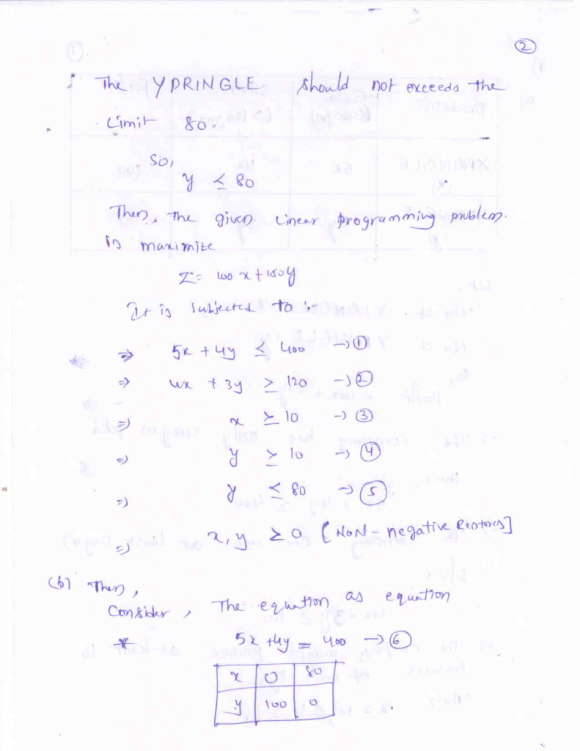 ②
The YPRINGLE should not exceeds the
Limit 80.
So,
y ≤ 80
Then, the given Linear programming problem.
is maximize
Z = 100x + 150y
It is subjected to :-
⇒ 5x + 4y ≤ 400 → ①
⇒ 4x + 3y ≥ 120 → ②
⇒ x ≥ 10 → ③
⇒ y ≥ 10 → ④
⇒ y ≤ 80 → ⑤
⇒ x, y ≥ 0 [NON-negative]
(b) Then,
Consider, The equation as equation
* 5x + 4y = 400 → ⑥
x 0 80
y 100 0